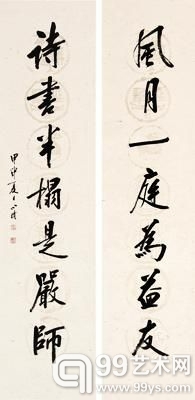 風月一庭為益友
詩書半榻是嚴師
甲申夏
99艺术网
www.99ys.com